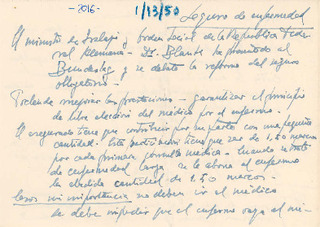 -2016-
1/13/50
Seguro de enfermedad
El ministro de Trabajo y Orden Social de la República Fede
ral Alemana - Sr. Blank ha presentado al
Bundestag y se debate la reforma del seguro
obligatorio.
Pretende mejorar las prestaciones - garantizar el principio
de libre elección del médico por el enfermo.
El asegurado tiene que contribuir por su parte con una pequeña
cantidad. Esta participación tiene que ser de 1.50 marcos
por cada primera consulta médica. Cuando se trate
de enfermedad larga se le abona al enfermo
la debida cantidad de 1.50 marcos.
Casos sin importancia no deben ir al médico
se debe impedir que el enfermo vaya al mé-